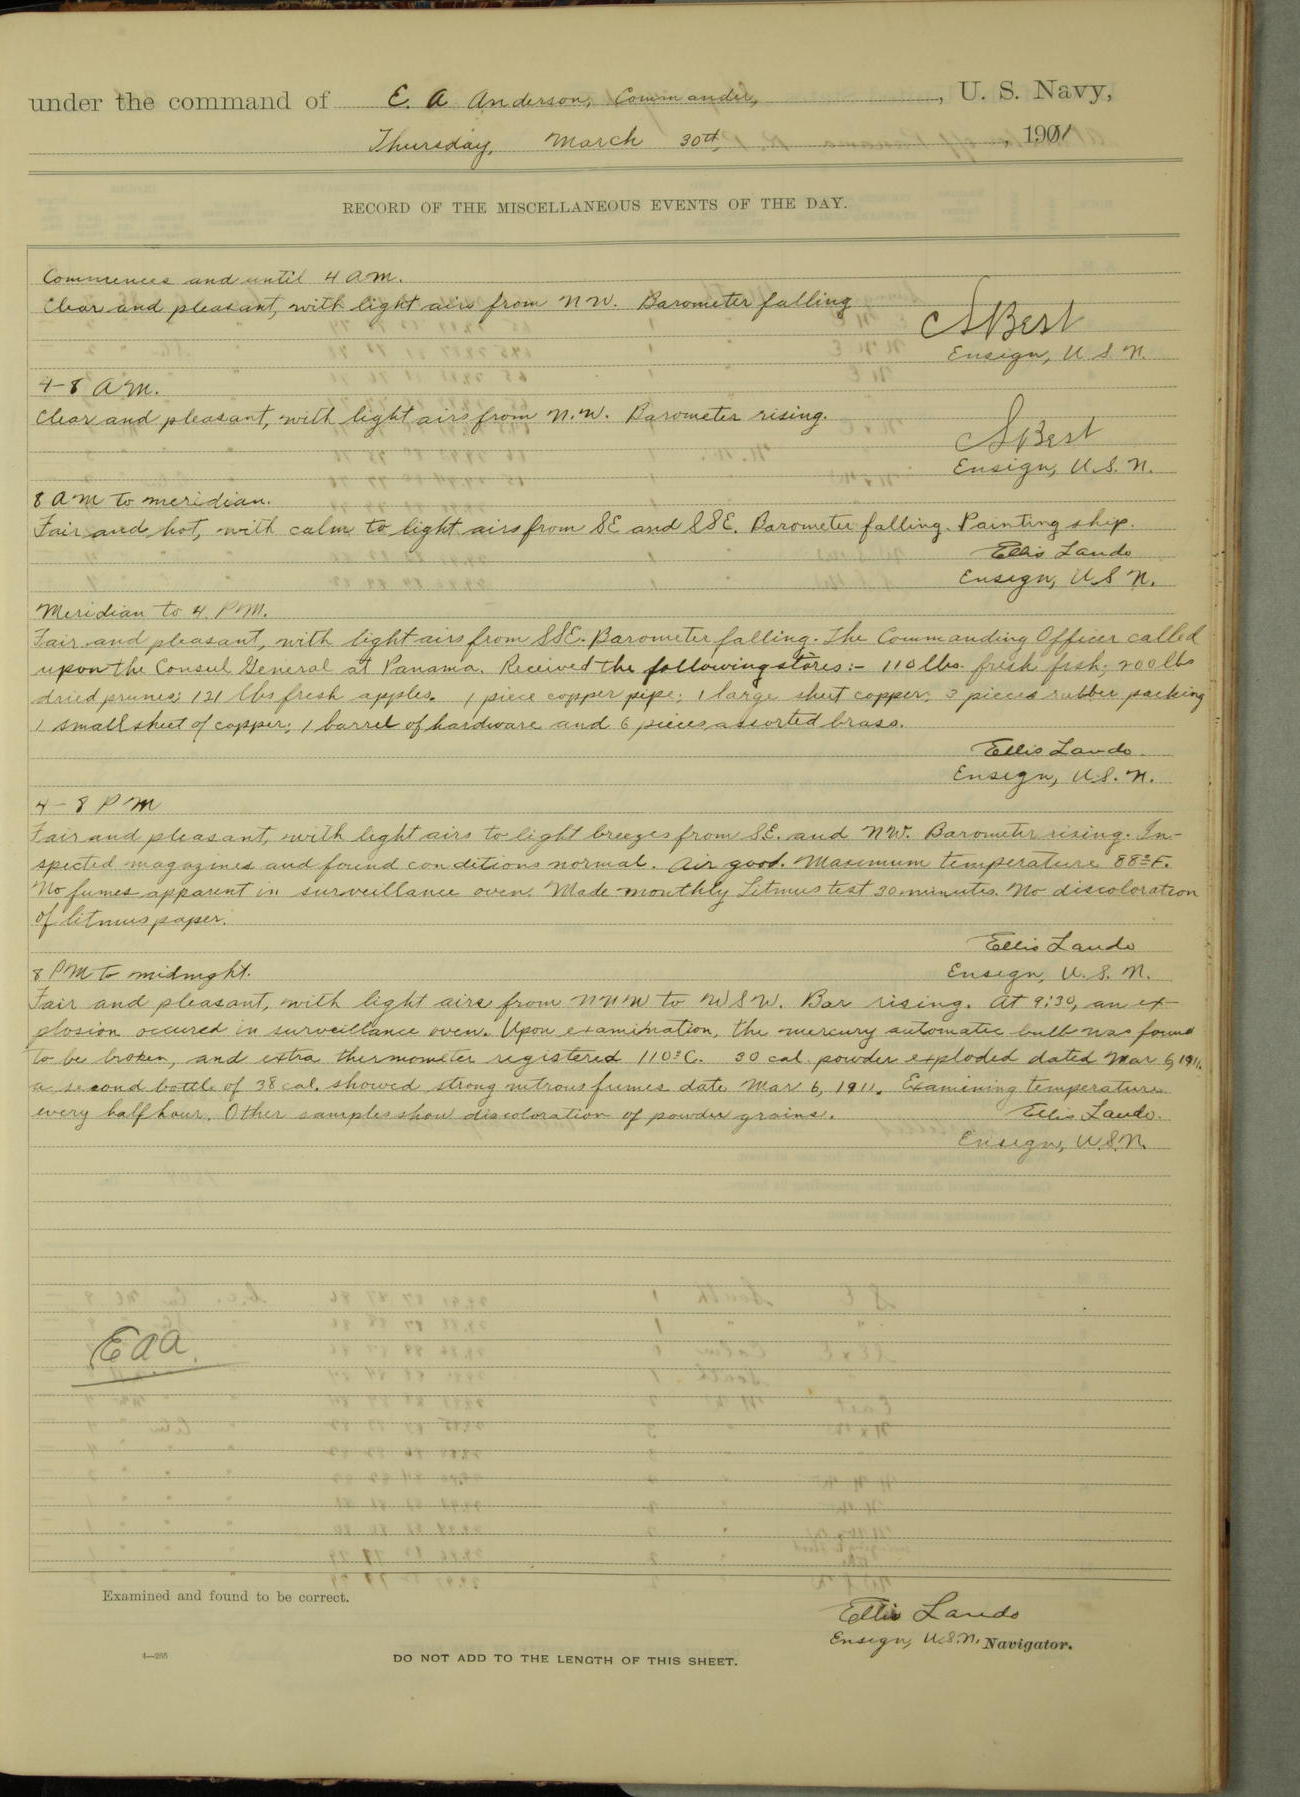 under the command of E. A. Anderson, Commander, U. S. Navy,
Thursday, March 30th, 1901
RECORD OF THE MISCELLANEOUS EVENTS OF THE DAY.
Commences and until 4 A.M.
Clear and pleasant, with light airs from N.W. Barometer falling
S Best
Ensign, U. S. N.
4-8 A.M.
Clear and pleasant, with light airs from N.W. Barometer rising.
S Best
Ensign, U. S. N.
8 A M to meridian.
Fair and hot, with calm to light airs from SE and SSE. Barometer falling. Painting ship.
Ellis Lando
Ensign, U S N.
Meridian to 4 P.M.
Fair and pleasant, with light airs from SSE. Barometer falling. The Commanding Officer called
upon the Consul General at Panama. Received the following stores:- 110 lbs. fresh fish; 200 lbs
dried prunes; 121 lbs fresh apples. 1 piece copper pipe; 1 large sheet copper; 3 pieces rubber packing
1 small sheet of copper; 1 barrel of hardware and 6 pieces assorted brass.
Ellis Lando
Ensign, U.S.N.
4-8 P M
Fair and pleasant, with light airs to light breezes from SE. and NW. Barometer rising. In-
spected magazines and found conditions normal. Air good. Maximum temperature 88° F.
No fumes apparent in surveillance oven. Made monthly Litmus test 30 minutes. No discoloration
of litmus paper.
Ellis Lando
8 PM to midnight.
Ensign, U. S. N.
Fair and pleasant, with light airs from NNW to WSW. Bar rising. At 9:30, an ex-
plosion occured in surveillance oven. Upon examination, the mercury automatic bulb was found
to be broken, and extra thermometer registered 110° C. 30 cal. powder exploded dated Mar 6, 1911.
a second bottle of 38 cal. showed strong nitrous fumes date Mar 6, 1911. Examining temperature
every half hour. Other samples show discoloration of powder grains.
Ellis Lando.
Ensign, U.S.N.
E A A.
Examined and found to be correct.
Ellis Lando
Ensign, U.S.N. Navigator.
4—265
DO NOT ADD TO THE LENGTH OF THIS SHEET.